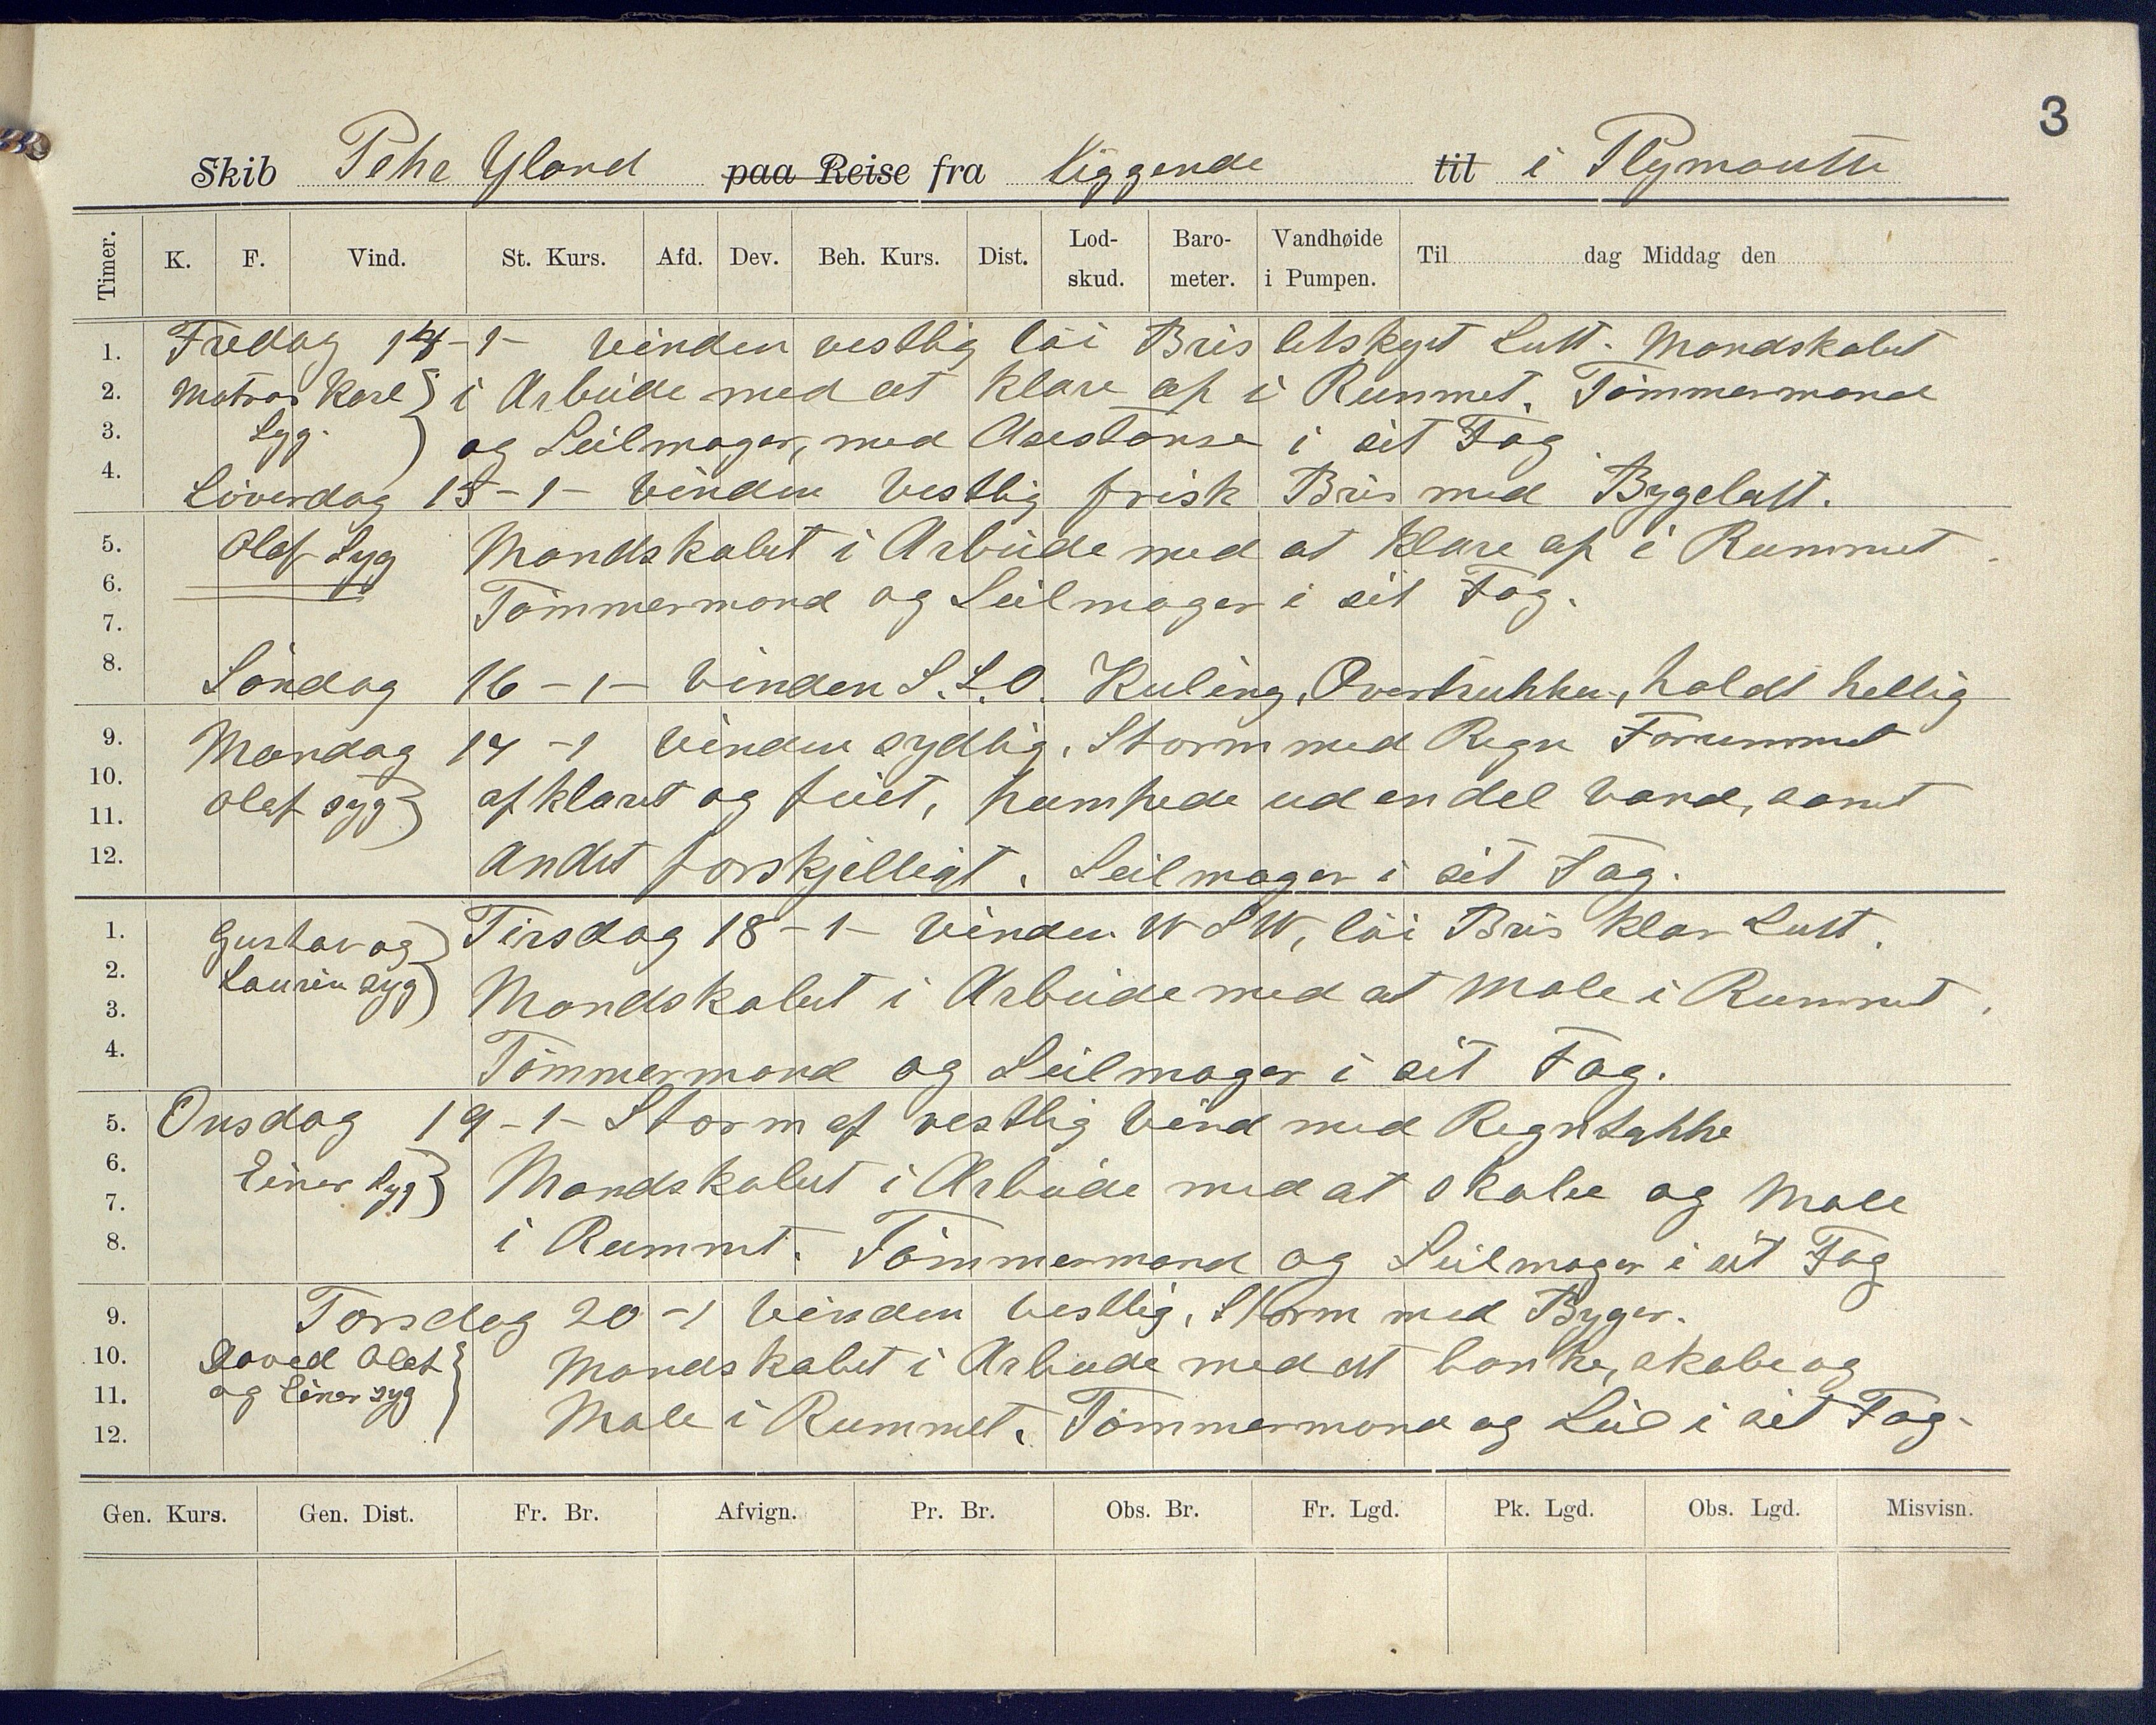 3
Skib Pehr Ugland paa Reise fra liggende til i Plymouth
Timer. K. F. Vind. St. Kurs. Afd. Dev. Beh. Kurs. Dist. Lod-skud. Baro-meter. Vandhøide i Pumpen. Til dag Middag den
1. Fredag 14-1- Vinden vestlig löi Bris letskyet Luft. Mandskabet
2. Matros Karl } i Arbeide med at klare op i Rummet. Tömmermand
3. Syg. ) og Seilmager, med Assistanse i sit Fag
4. Löverdag 15-1- Vinden Vestlig frisk Bris med Bygeluft.
5. Olaf Syg Mandskabet i Arbeide med at klare op i Rummet.
6. Tömmermand og Seilmager i sit Fag.
7.
8. Söndag 16-1- Vinden S.S.O. Kuling, Overtrukken, holdt hellig
9. Mandag 17-1 Vinden sydlig, Storm med Regn Forrummet
10. Olaf syg } afklaret og feiet, pumpede ud en del Vand, samt
11.
12. Andet forskjelligt. Seilmager i sit Fag.
1. Gustav og ) Tirsdag 18-1- Vinden WSW, löi Bris klar Luft.
2. Laurin syg )
3. Mandskabet i Arbeide med at Male i Rummet.
4. Tömmermand og Seilmager i sit Fag.
5. Onsdag 19-1- Storm af vestlig Vind med Regntykke
6. Einar Syg } Mandskabet i Arbeide med at skabe og Male
7.
8. i Rummet. Tömmermand og Seilmager i sit Fag
9. Torsdag 20-1 Vinden Vestlig, Storm med Byger.
10. David Olaf } Mandskabet i Arbeide med at banke, skabe og
11. og Einar syg
12. Male i Rummet. Tömmermand og Seil i sit Fag.
Gen. Kurs. Gen. Dist. Fr. Br. Afvign. Pr. Br. Obs. Br. Fr. Lgd. Pk. Lgd. Obs. Lgd. Misvisn.